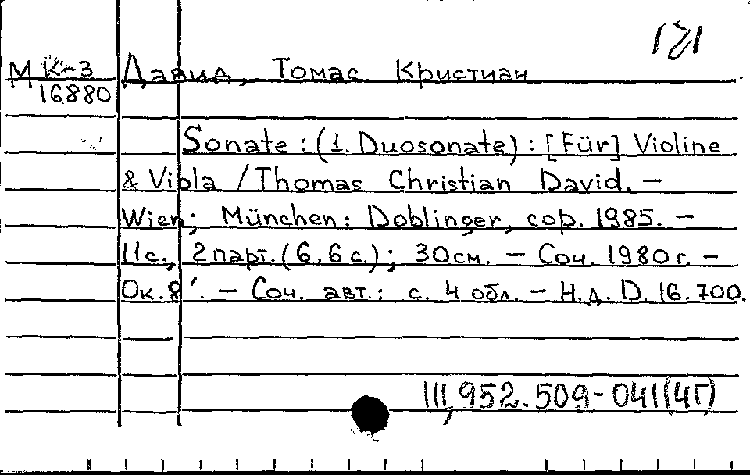 121
М К-3 Давид, Томас Кристиан
16880
Sonate : (1. Duosonate) : [Für] Violine
& Viola / Thomas Christian David. –
Wien; München: Doblinger, cop. 1985. –
11 с., 2 парт. (6, 6 с.); 30 см. – Соч. 1980 г. –
Ок. 8'. – Соч. авт.: с. 4 обл. – Н.д. D. 16.700.
III, 952. 509-041(4Г)